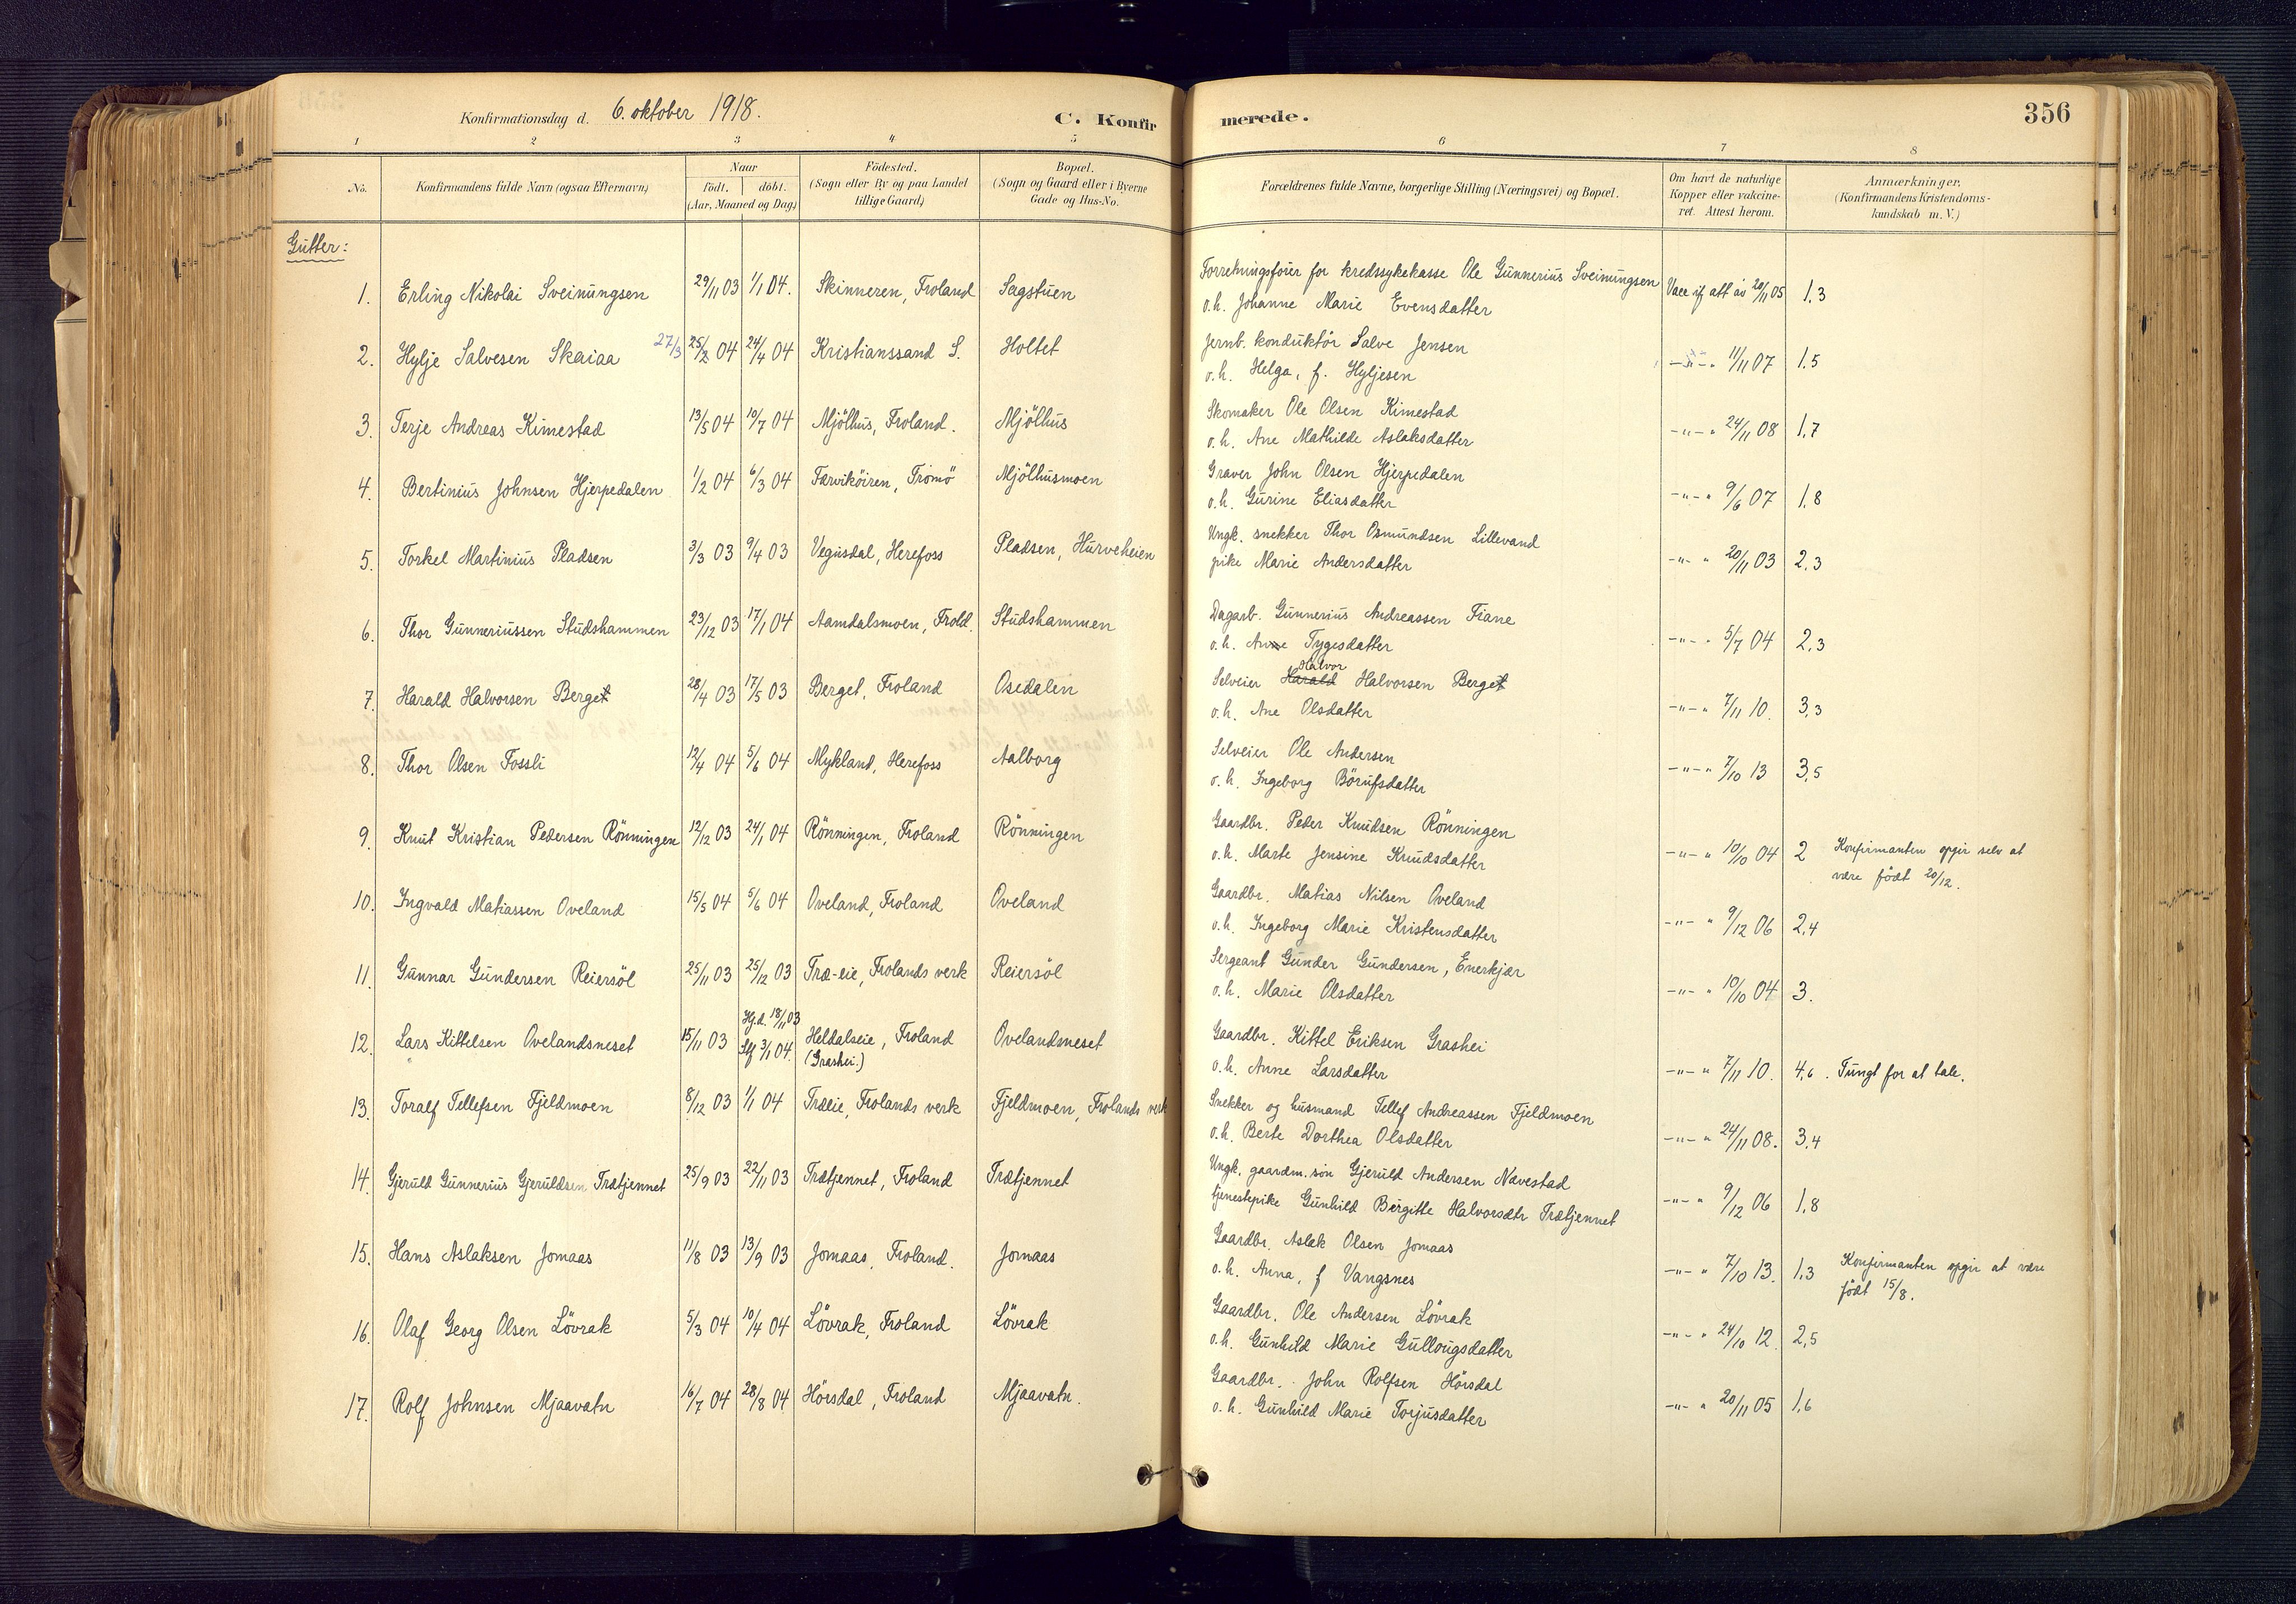 Konfirmationsdag d. 6. oktober 1918. C. Konfirmerede. 356
1 2 3 4 5 6 7 8
No. Konfirmandens fulde Navn (ogsaa Efternavn) Naar födt. döbt. (Aar, Maaned og Dag) Födested. (Sogn eller By og paa Landet tillige Gaard) Bopæl. (Sogn og Gaard eller i Byerne Gade og Hus-No. Forældrenes fulde Navne, borgerlige Stilling (Næringsvei) og Bopæl. Om havt de naturlige Kopper eller vakcineret. Attest herom. Anmærkninger. (Konfirmandens Kristendomskundskab m. V.)
Gutter:
1. Erling Nikolai Sveinungsen 29/11 03 1/1 04. Skinneren, Froland Sagstuen Forretningsförer for kredssykekasse Ole Gunnerius Sveinungsen Vacc if att av 20/11 05 1,3
o.h. Johanne Marie Evensdatter
2. Hylje Salvesen Skaiaa 27/3 25/2 04 24/4 04 Kristianssand S. Holtet Jernb. konduktör Salve Jensen
o.h. Helga, f. Hyljesen —"— " 11/11 07 1.5
3. Terje Andreas Kimestad 13/5 04 10/7 04 Mjölhus, Froland. Mjölhus Skomaker Ole Olsen Kimestad
o.h. Ane Mathilde Aslaksdatter —"— " 24/11 08 1,7
4. Bertinius Johnsen Hjerpedalen 1/2 04 6/3 04 Færviköiren, Tromö Mjölhusmoen Graver John Olsen Hjerpedalen
o.h. Gurine Eliasdatter —"— " 9/6 07 1.8
5. Torkel Martinius Pladsen 3/3 03 9/4 03 Vegusdal, Herefoss Pladsen, Hurveheien Ungk. snekker Thor Osmundsen Lillevand
pike Marie Andersdatter —"— " 20/11 03 2,3
6. Thor Gunneriussen Studshammen 23/12 03 17/1 04 Aamdalsmoen, Frold. Studshammen Dagarb. Gunnerius Andreassen Fiane
o.h. Anne Tygesdatter —"— " 5/7 04 2,3
7. Harald Halvorsen Berget 28/4 03 17/5 03 Berget, Froland Osedalen Selveier Harald Halvor Halvorsen Berget
o.h. Ane Olsdatter —"— " 7/11 10. 3,3
8. Thor Olsen Fossli 12/4 04 5/6 04 Mykland, Herefoss Aalborg Selveier Ole Andersen
o.h. Ingeborg Börufsdatter —"— " 7/10 13 3,5
9. Knut Kristian Pedersen Rönningen 12/12 03 24/1 04 Rönningen, Froland Rönningen Gaardbr. Peder Knudsen Rönningen
o.h. Marte Jensine Knudsdatter —"— " 10/10 04 2 Konfirmanten opgir selv at
være födt 20/12.
10. Ingvald Matiassen Oveland 15/5 04 5/6 04 Oveland, Froland Oveland Gaardbr. Matias Nilsen Oveland
o.h. Ingeborg Marie Kristensdatter —"— " 9/12 06 2,4
11. Gunnar Gundersen Reiersöl 25/11 03 25/12 03 Træ-eie, Frolands verk Reiersöl Sergeant Gunder Gundersen, Enerkjær
o.h. Marie Olsdatter —"— " 10/10 04 3.
12. Lars Kittelsen Ovelandsneset 15/11 03 Hj.d. 18/11 03 Stf 3/1 04. Heldalseie, Froland (Grashei.) Ovelandsneset Gaardbr. Kittel Eriksen Grashei
o.h. Anne Larsdatter —"— " 7/11 10. 4,6. Tungt for at tale.
13. Toralf Tellefsen Fjeldmoen 8/12 03 1/1 04 Træeie, Frolands verk Fjeldmoen, Frolands verk Snekker og husmand Tellef Andreassen Fjeldmoen
o.h. Berte Dorthea Olsdatter —"— " 24/11 08. 3,4
14. Gjeruld Gunnerius Gjeruldsen Trætjennet 25/9 03 22/11 03 Trætjennet, Froland Trætjennet Ungk. gaardm. sön Gjeruld Andersen Navestad
tjenestepike Gunhild Birgitte Halvorsdtr Trætjennet —"— " 9/12 06 1,8
15. Hans Aslaksen Jomaas 11/8 03 13/9 03 Jomaas, Froland. Jomaas Gaardbr. Aslak Olsen Jomaas
o.h. Anna, f Vangsnes —"— " 7/10 13. 1,3 Konfirmanten opgir at være
födt 15/8.
16. Olaf Georg Olsen Lövrak 5/3 04 10/4 04 Lövrak, Froland Lövrak Gaardbr. Ole Andersen Lövrak
o.h. Gunhild Marie Gullougsdatter —"— " 24/10 12. 2,5
17. Rolf Johnsen Mjaavatn 16/7 04 28/8 04 Hörsdal, Froland Mjaavatn. Gaardbr. John Rolfsen Hörsdal
o.h. Gunhild Marie Torjusdatter —"— " 20/11 05 1,6